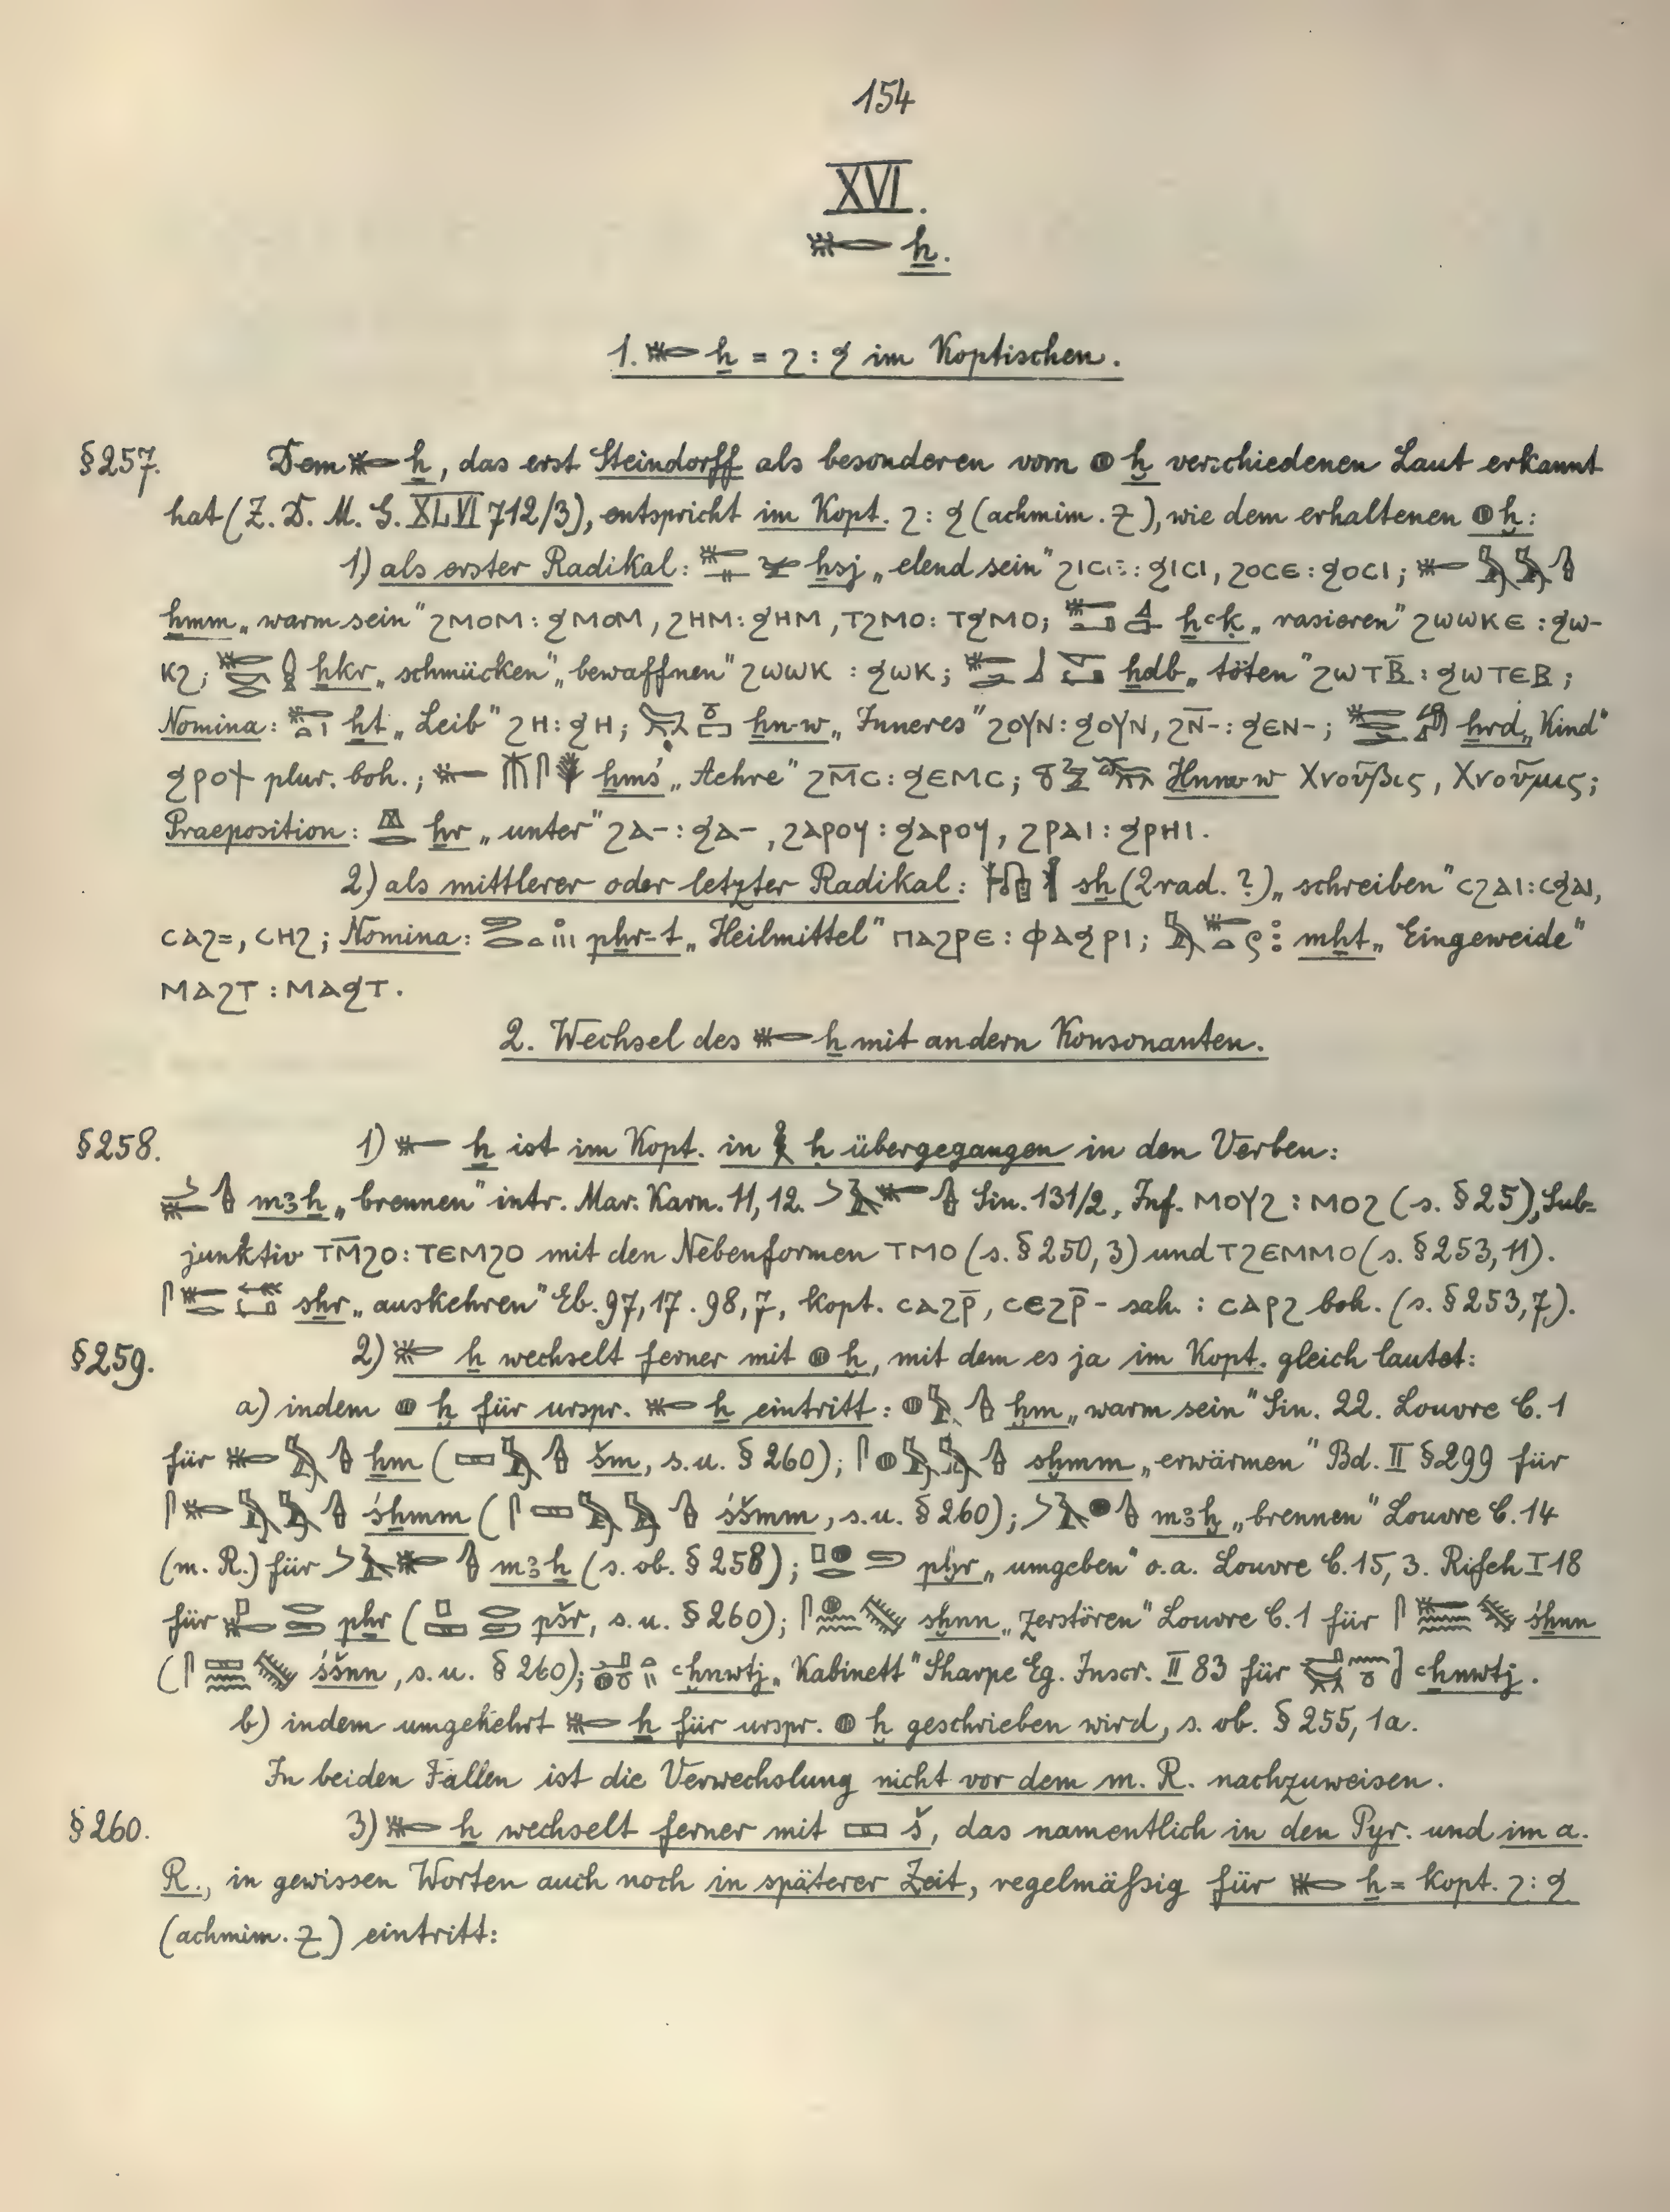 154
XVI.
𓄡 ẖ.
1. 𓄡 ẖ = ϩ : ϧ im Koptischen.
§257. Dem 𓄡 ẖ, das erst Steindorff als besonderen vom 𓐍 ḫ verschiedenen Laut erkannt
hat (Z. D. M. G. XLVI 712/3), entspricht im Kopt. ϩ : ϧ (achmim. ⳉ), wie dem erhaltenen 𓐍 ḫ:
1) als erster Radikal: ẖsj „elend sein“ ϩⲓⲥⲉ : ϧⲓⲥⲓ, ϩⲟⲥⲉ : ϧⲟⲥⲓ; 𓄡𓅓𓅓𓊮
ẖmm „warm sein“ ϩⲙⲟⲙ : ϧⲙⲟⲙ, ϩⲏⲙ : ϧⲏⲙ, ⲧϩⲙⲟ : ⲧϧⲙⲟ; ẖꜥḳ „rasieren“ ϩⲱⲱⲕⲉ : ϧⲱ-
ⲕϩ; ẖkr „schmücken“ „bewaffnen“ ϩⲱⲱⲕ : ϧⲱⲕ; ẖdb „töten“ ϩⲱⲧⲃ̅ : ϧⲱⲧⲉⲃ;
Nomina: ẖt „Leib“ ϩⲏ : ϧⲏ; ẖn-w „Inneres“ ϩⲟⲩⲛ : ϧⲟⲩⲛ, ϩⲛ̅- : ϧⲉⲛ-; ẖrd „Kind“
ϧⲣⲟϯ plur. boh.; ẖmś „Aehre“ ϩⲙ̅ⲥ : ϧⲉⲙⲥ; H̱nm-w Χνοῦβις, Χνοῦμις;
Praeposition: ẖr „unter“ ϩⲁ- : ϧⲁ-, ϩⲁⲣⲟϥ : ϧⲁⲣⲟϥ, ϩⲣⲁⲓ : ϧⲣⲏⲓ.
2) als mittlerer oder letzter Radikal: sẖ (2rad. ?) „schreiben“ ⲥϩⲁⲓ : ⲥϧⲁⲓ,
ⲥⲁϩ=, ⲥⲏϩ; Nomina: pẖr-t „Heilmittel“ ⲡⲁϩⲣⲉ : ⲫⲁϧⲣⲓ; mẖt „Eingeweide“
ⲙⲁϩⲧ : ⲙⲁϧⲧ.
2. Wechsel des 𓄡 ẖ mit andern Konsonanten.
§258. 1) 𓄡 ẖ ist im Kopt. in 𓎛 ḥ übergegangen in den Verben:
mꜣẖ „brennen“ intr. Mar. Karn. 11, 12. Sin. 131/2, Inf. ⲙⲟⲩϩ : ⲙⲟϩ (s. § 25), Sub-
junktiv ⲧⲙ̅ϩⲟ : ⲧⲉⲙϩⲟ mit den Nebenformen ⲧⲙⲟ (s. § 250, 3) und ⲧϩⲉⲙⲙⲟ (s. § 253, 11).
sẖr „auskehren“ Eb. 97, 17. 98, 7, kopt. ⲥⲁϩⲣ̅, ⲥⲉϩⲣ̅- sah. : ⲥⲁⲣϩ boh. (s. § 253, 7).
§259. 2) 𓄡 ẖ wechselt ferner mit 𓐍 ḫ, mit dem es ja im Kopt. gleich lautet:
a) indem 𓐍 ḫ für urspr. 𓄡 ẖ eintritt: 𓐍𓅓𓊮 ḫm „warm sein“ Sin. 22. Louvre C. 1
für 𓄡𓅓𓊮 ẖm (𓈙𓅓𓊮 šm, s. u. § 260); 𓋴𓐍𓅓𓅓𓊮 sḫmm „erwärmen“ Bd. II § 299 für
𓋴𓄡𓅓𓅓𓊮 śẖmm (𓋴𓈙𓅓𓅓𓊮 śšmm, s. u. § 260); mꜣḫ „brennen“ Louvre C. 14
(m. R.) für mꜣẖ (s. ob. § 258); pḫr „umgeben“ o. a. Louvre C. 15, 3. Rifeh I 18
für pẖr (pšr, s. u. § 260); sḫnn „zerstören“ Louvre C. 1 für śẖnn
(śšnn, s. u. § 260); ꜥḫnwtj „Kabinett“ Sharpe Eg. Inscr. II 83 für ꜥẖnwtj.
b) indem umgekehrt 𓄡 ẖ für urspr. 𓐍 ḫ geschrieben wird, s. ob. § 255, 1a.
In beiden Fällen ist die Verwechslung nicht vor dem m. R. nachzuweisen.
§260. 3) 𓄡 ẖ wechselt ferner mit 𓈙 š, das namentlich in den Pyr. und im a.
R., in gewissen Worten auch noch in späterer Zeit, regelmäßig für 𓄡 ẖ = kopt. ϩ : ϧ
(achmim. ⳉ) eintritt: